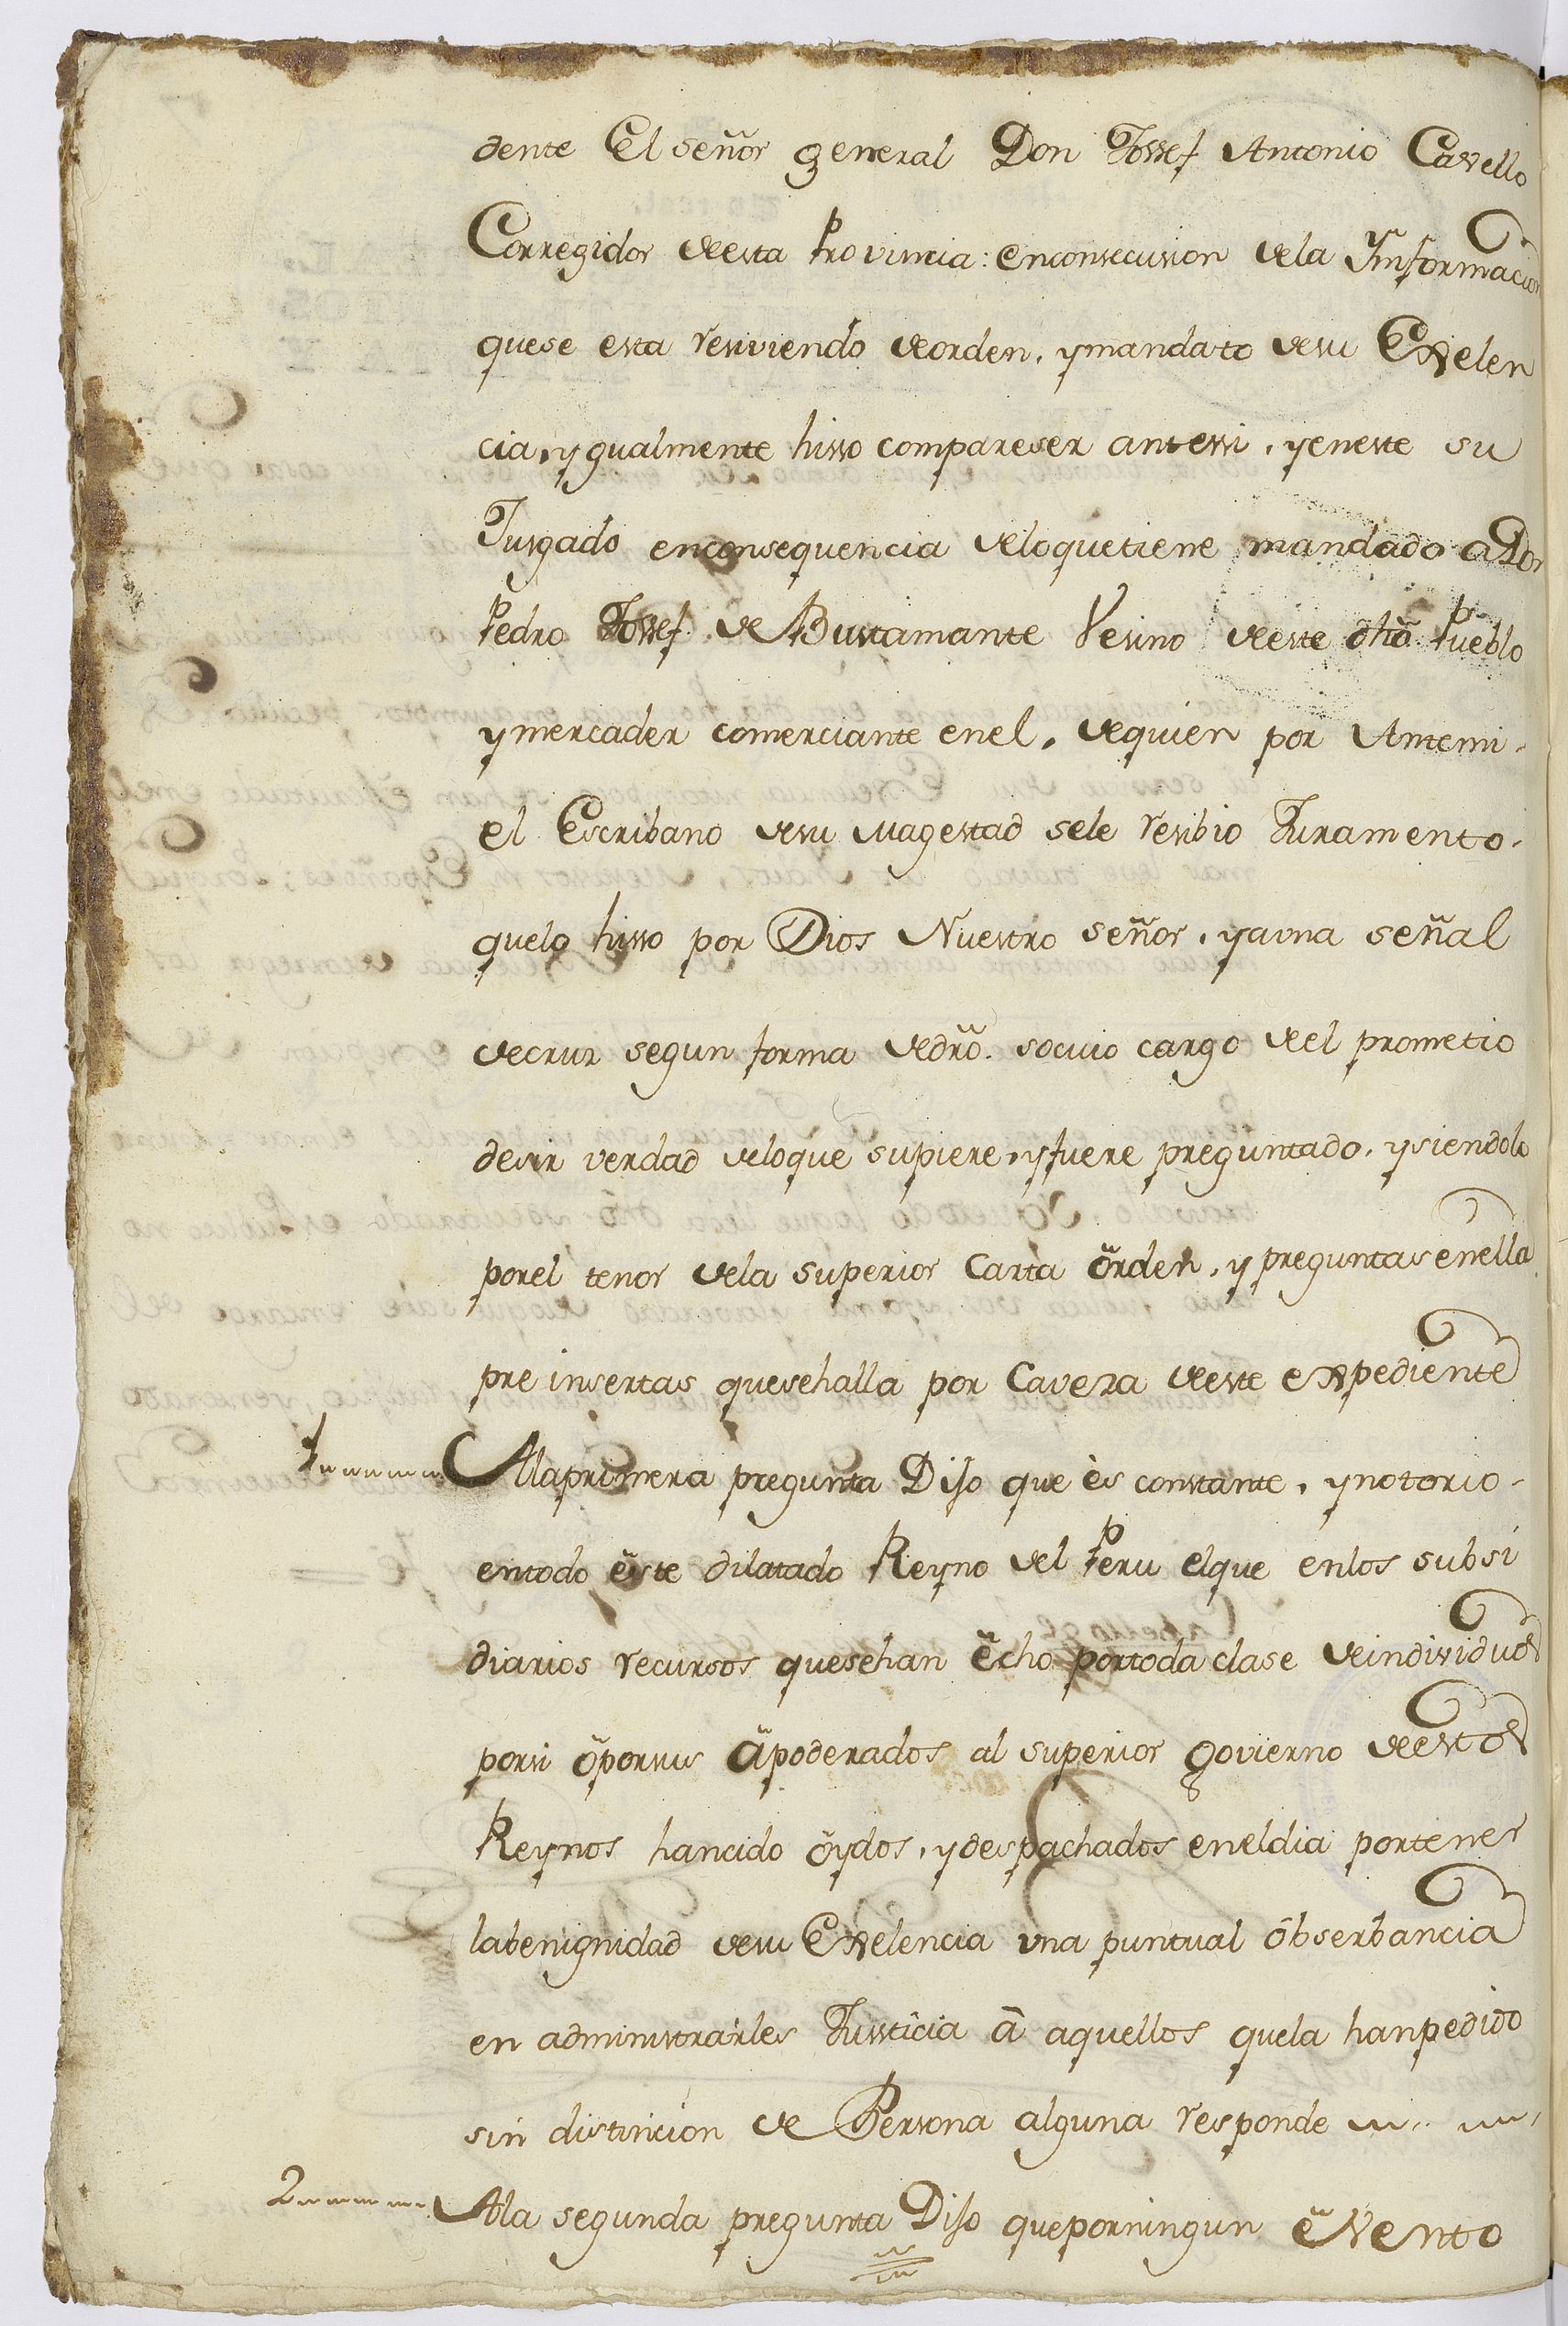 dente El señor general Don Jossef Antonio Cavello
Corregidor deesta Provincia: enconsecusion dela Ynformacion
quese esta resiviendo deorden, ymandato desu Exelen
cia, ygualmente hisso compareser antessi, yeneste su
Jusgado enconsequencia deloquetiene mandado aDon
Pedro Jossef de Bustamante Vesino deeste dho Pueblo
ymercader comerciante enel, dequien por Antemi
el Escribano desu Magestad sele resibio Juramento
quelo hisso por Dios Nuestro señor, yauna señal
decruz segun forma dedro. socuio cargo deel prometio
desir verdad deloque supiere, yfuere preguntado, ysiendolo
porel tenor dela superior Carta örden, y preguntas enella
pre insertas quesehalla por Caveza deeste expediente
1 Alaprimera pregunta Dijo que ès constante, ynotorio
entodo ëste dilatado Reyno del Peru elque enlos subsi
diarios recursos quesehan ëcho portoda clase deindividuos
porsi öporsus äpoderados al superior govierno deestos
Reynos hancido öydos, ydespachados eneldia portener
labenignidad desu Exelencia vna puntual öbserbancia
en administrarles Jussticia â aquellos quela hanpedido
sin distincion de Persona alguna responde
2 Ala segunda pregunta Dijo queporningun ëVento